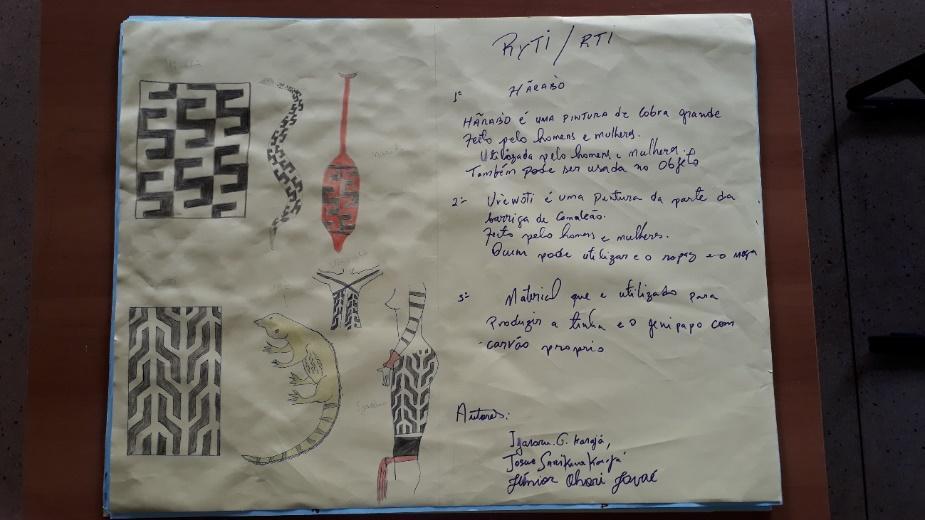 RYTI / RTI
1º HÃRABÒ
HÃRABÒ É UMA PINTURA de cobra grande
Feito pelo homens e mulheres.
Utilizada pelo homens e mulheres.
Também pode ser usada no Objeto
2º- é uma Pintura da parte da
barriga de Camaleão.
Feito pelo homens e mulheres.
Quem pode utilizar e o rapaz e o moça
3º- Material que e utilizado para
Produzir a tinta e o jenipapo com
carvão proprio
Autores:
G. Karajá,
Josue Karajá
Júnior Javaé